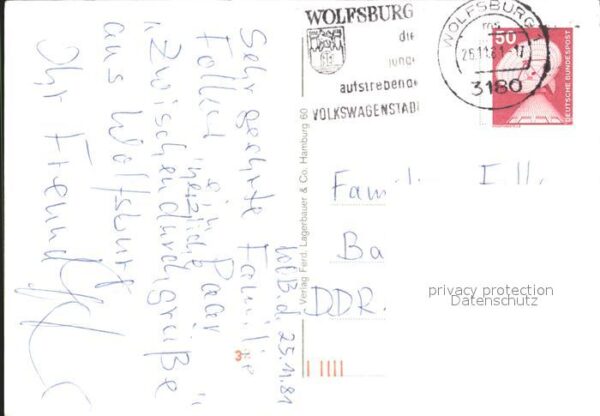 WOLFSBURG
die
junge
aufstrebende
VOLKSWAGENSTADT
WOLFSBURG 1
3180
50
DEUTSCHE BUNDESPOST
WOB.d. 25.11.81
Sehr geehrte Familie
ein Paar
herzliche
„Zwischendurchgrüße"
aus Wolfsburg
Ihr Freund
Verlag Ferd. Lagerbauer & Co. Hamburg 60
Fam
Ba
DDR.
privacy protection
Datenschutz
3